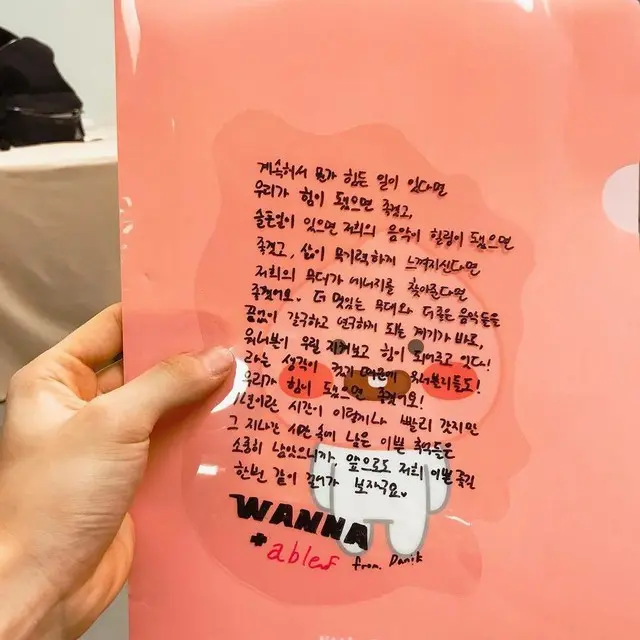 계속해서 뭔가 힘든 일이 있다면
우리가 힘이 됐으면 좋겠고,
슬픈일이 있으면 저희의 음악이 힐링이 됐으면
좋겠고, 삶이 무기력하게 느껴지신다면
저희의 무대가 에너지를 찾아준다면
좋겠어요. 더 멋있는 무대와 더 좋은 음악들을
끊임없이 갈구하고 연구하게 되는 계기가 바로,
워너블이 우릴 지켜보고 힘이 되어주고 있다!
라는 생각이 컸기 때문에 워너블리들도!
우리가 힘이 됐으면 좋겠어요!
1년이란 시간이 이렇게나 빨리 갔지만
그 지나간 시간 속에 남은 이쁜 추억들은
소중히 남았으니까, 앞으로도 저희 이쁜 꽃길
한번 같이 걸어가 보자구요.
WANNA
+ablef from. Danik